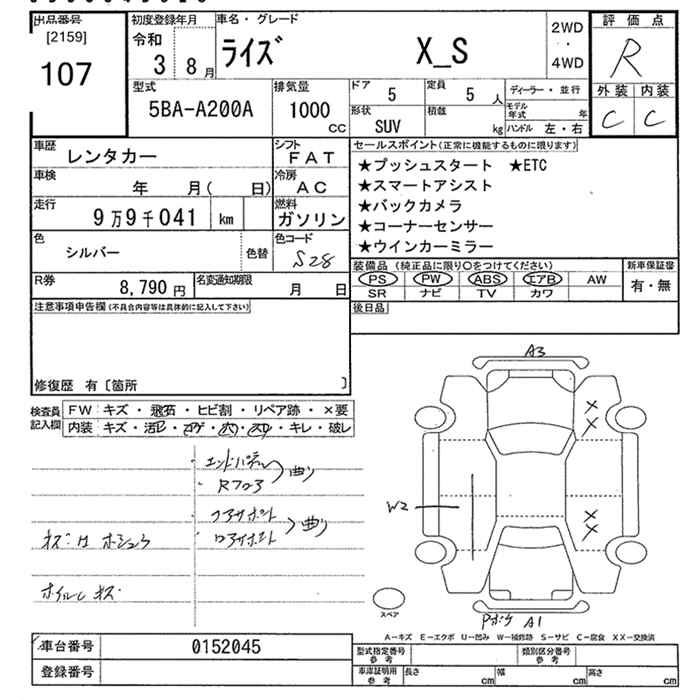 出品番号
[2159]
107
初度登録年月
令和
3 8月
車名・グレード
ライズ X_S
2WD
・
4WD
評価点
R
外装 内装
C C
型式
5BA-A200A
排気量
1000
CC
ドア
5
定員
5 人
ディーラー・並行
形状
SUV
積載
kg
モデル年式 年
ハンドル 左・右
車歴
レンタカー
シフト
F A T
車検
年 月( 日)
冷房
A C
走行
9万9千041 km
燃料
ガソリン
色
シルバー
色替
色コード
S28
R券
8,790円
名変通知期限
月 日
セールスポイント(正常に機能するものに限ります)
★プッシュスタート ★ETC
★スマートアシスト
★バックカメラ
★コーナーセンサー
★ウインカーミラー
装備品 (純正品に限り○をつけてください)
PS PW ABS エアB AW
SR ナビ TV カワ
新車保証書
有・無
後日品
注意事項申告欄(不具合内容等は具体的に記入して下さい)
修復歴 有〔箇所 〕
検査員
記入欄
FW キズ・飛石・ヒビ割・リペア跡・×要
内装 キズ・汚レ・コゲ・穴・スレ・キレ・破レ
エンドパネル
Rフロア
曲り
ホイルしキズ
A3
W2
A1
スペア
A-キズ E-エクボ U-凹み W-補修跡 S-サビ C-腐食 XX-交換済
車台番号 0152045
登録番号
型式指定番号
参考
類別区分番号
参考
車庫証明用
参考
長さ cm 幅 cm 高さ cm